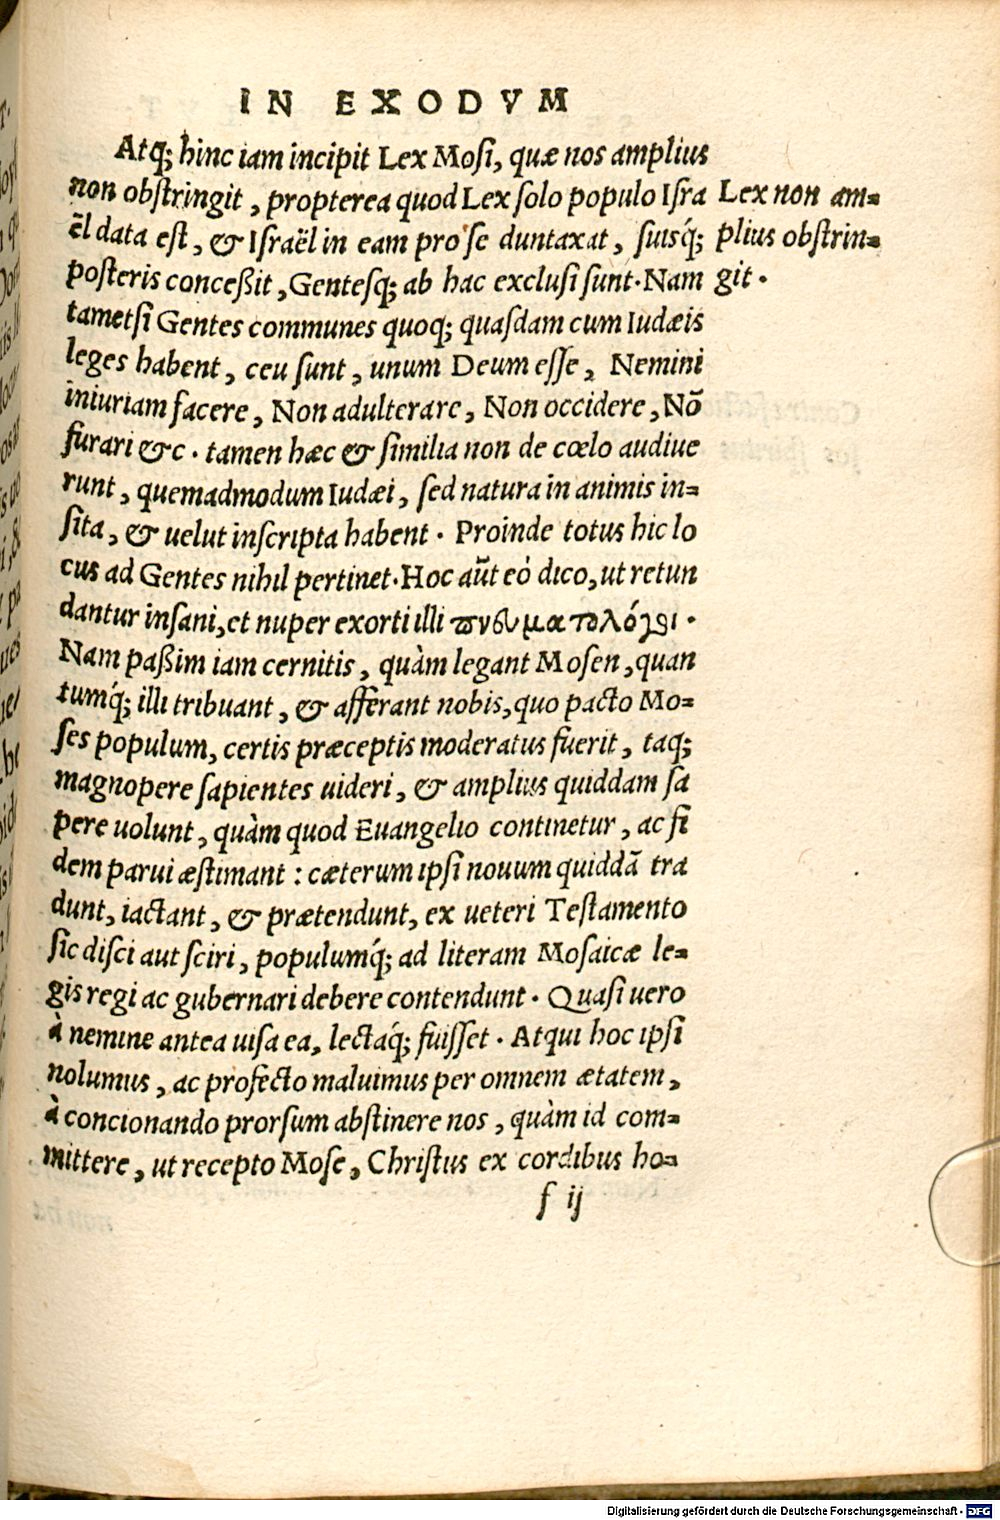 IN EXODVM
Atq; hinc iam incipit Lex Mosi, quæ nos amplius
non obstringit, propterea quod Lex solo populo Isra
ël data est, & Israël in eam pro se duntaxat, suisq́;
posteris conceßit, Gentesq; ab hac exclusi sunt. Nam
tametsi Gentes communes quoq; quasdam cum Iudæis
leges habent, ceu sunt, unum Deum esse, Nemini
iniuriam facere, Non adulterare, Non occidere, Nõ
furari &c. tamen hæc & similia non de cœlo audiue
runt, quemadmodum Iudæi, sed natura in animis in=
sita, & uelut inscripta habent. Proinde totus hic lo
cus ad Gentes nihil pertinet. Hoc aũt eó dico, ut retun
dantur insani, et nuper exorti illi πνευματολόγοι.
Nam paßim iam cernitis, quàm legant Mosen, quan
tumq́; illi tribuant, & afferant nobis, quo pacto Mo=
ses populum, certis præceptis moderatus fuerit, taq;
magnopere sapientes uideri, & amplius quiddam sa
pere uolunt, quàm quod Euangelio continetur, ac fi
dem parui æstimant : cæterum ipsi nouum quiddã tra
dunt, iactant, & prætendunt, ex ueteri Testamento
sic disci aut sciri, populumq́; ad literam Mosaicæ le=
gis regi ac gubernari debere contendunt. Quasi uero
à nemine antea uisa ea, lectaq́; fuisset. Atqui hoc ipsi
nolumus, ac profecto maluimus per omnem ætatem,
à concionando prorsum abstinere nos, quàm id com=
mittere, ut recepto Mose, Christus ex cordibus ho=
f ij
Lex non am=
plius obstrin=
git.
Digitalisierung gefördert durch die Deutsche Forschungsgemeinschaft - DFG